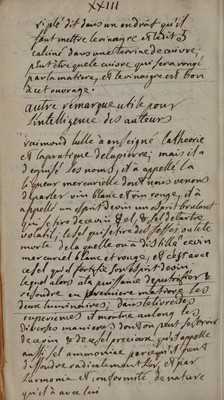 XXIII
riplé dit dans un endroit qu'il
faut mettre le vinaigre et
calciné dans une terrine de cuivre,
peut être que le cuivre qui sera rongé
par la matiere, et le vinaigre est bon
a cet ouvrage.
autre remarque utile pour
l'intelligence des auteurs
raimond lulle a enseigné la theorie
et la pratique de la pierre; mais il a
deguisé les noms, il a appellé la
liqueur mercurielle dont nous venons
de parler vin blanc et vin rouge, il a
appellé un esprit de vin un esprit brulant
qui se tire de ce vin & et, & sel de tartre
volatil, le sel qui se tire des fosses ou tete
morte de la quelle on a distillé ce vin
mercuriel blanc et rouge, et c'est avec
ce sel qu'il fortifie son esprit de vin,
lequel alors a la puissance de putrefier &
resoudre en premiere matiere les
deux luminaires; dans le livre des
experiences il montre au long les
diverses manieres dont on peut se servir
de ce vin & de ce sel precieux, qu'il appelle
aussi sel ammoniac parce qu'il peut
dissoudre radicalement l'or, et par
l'armonie et conformité de nature
qu'il a avec lui